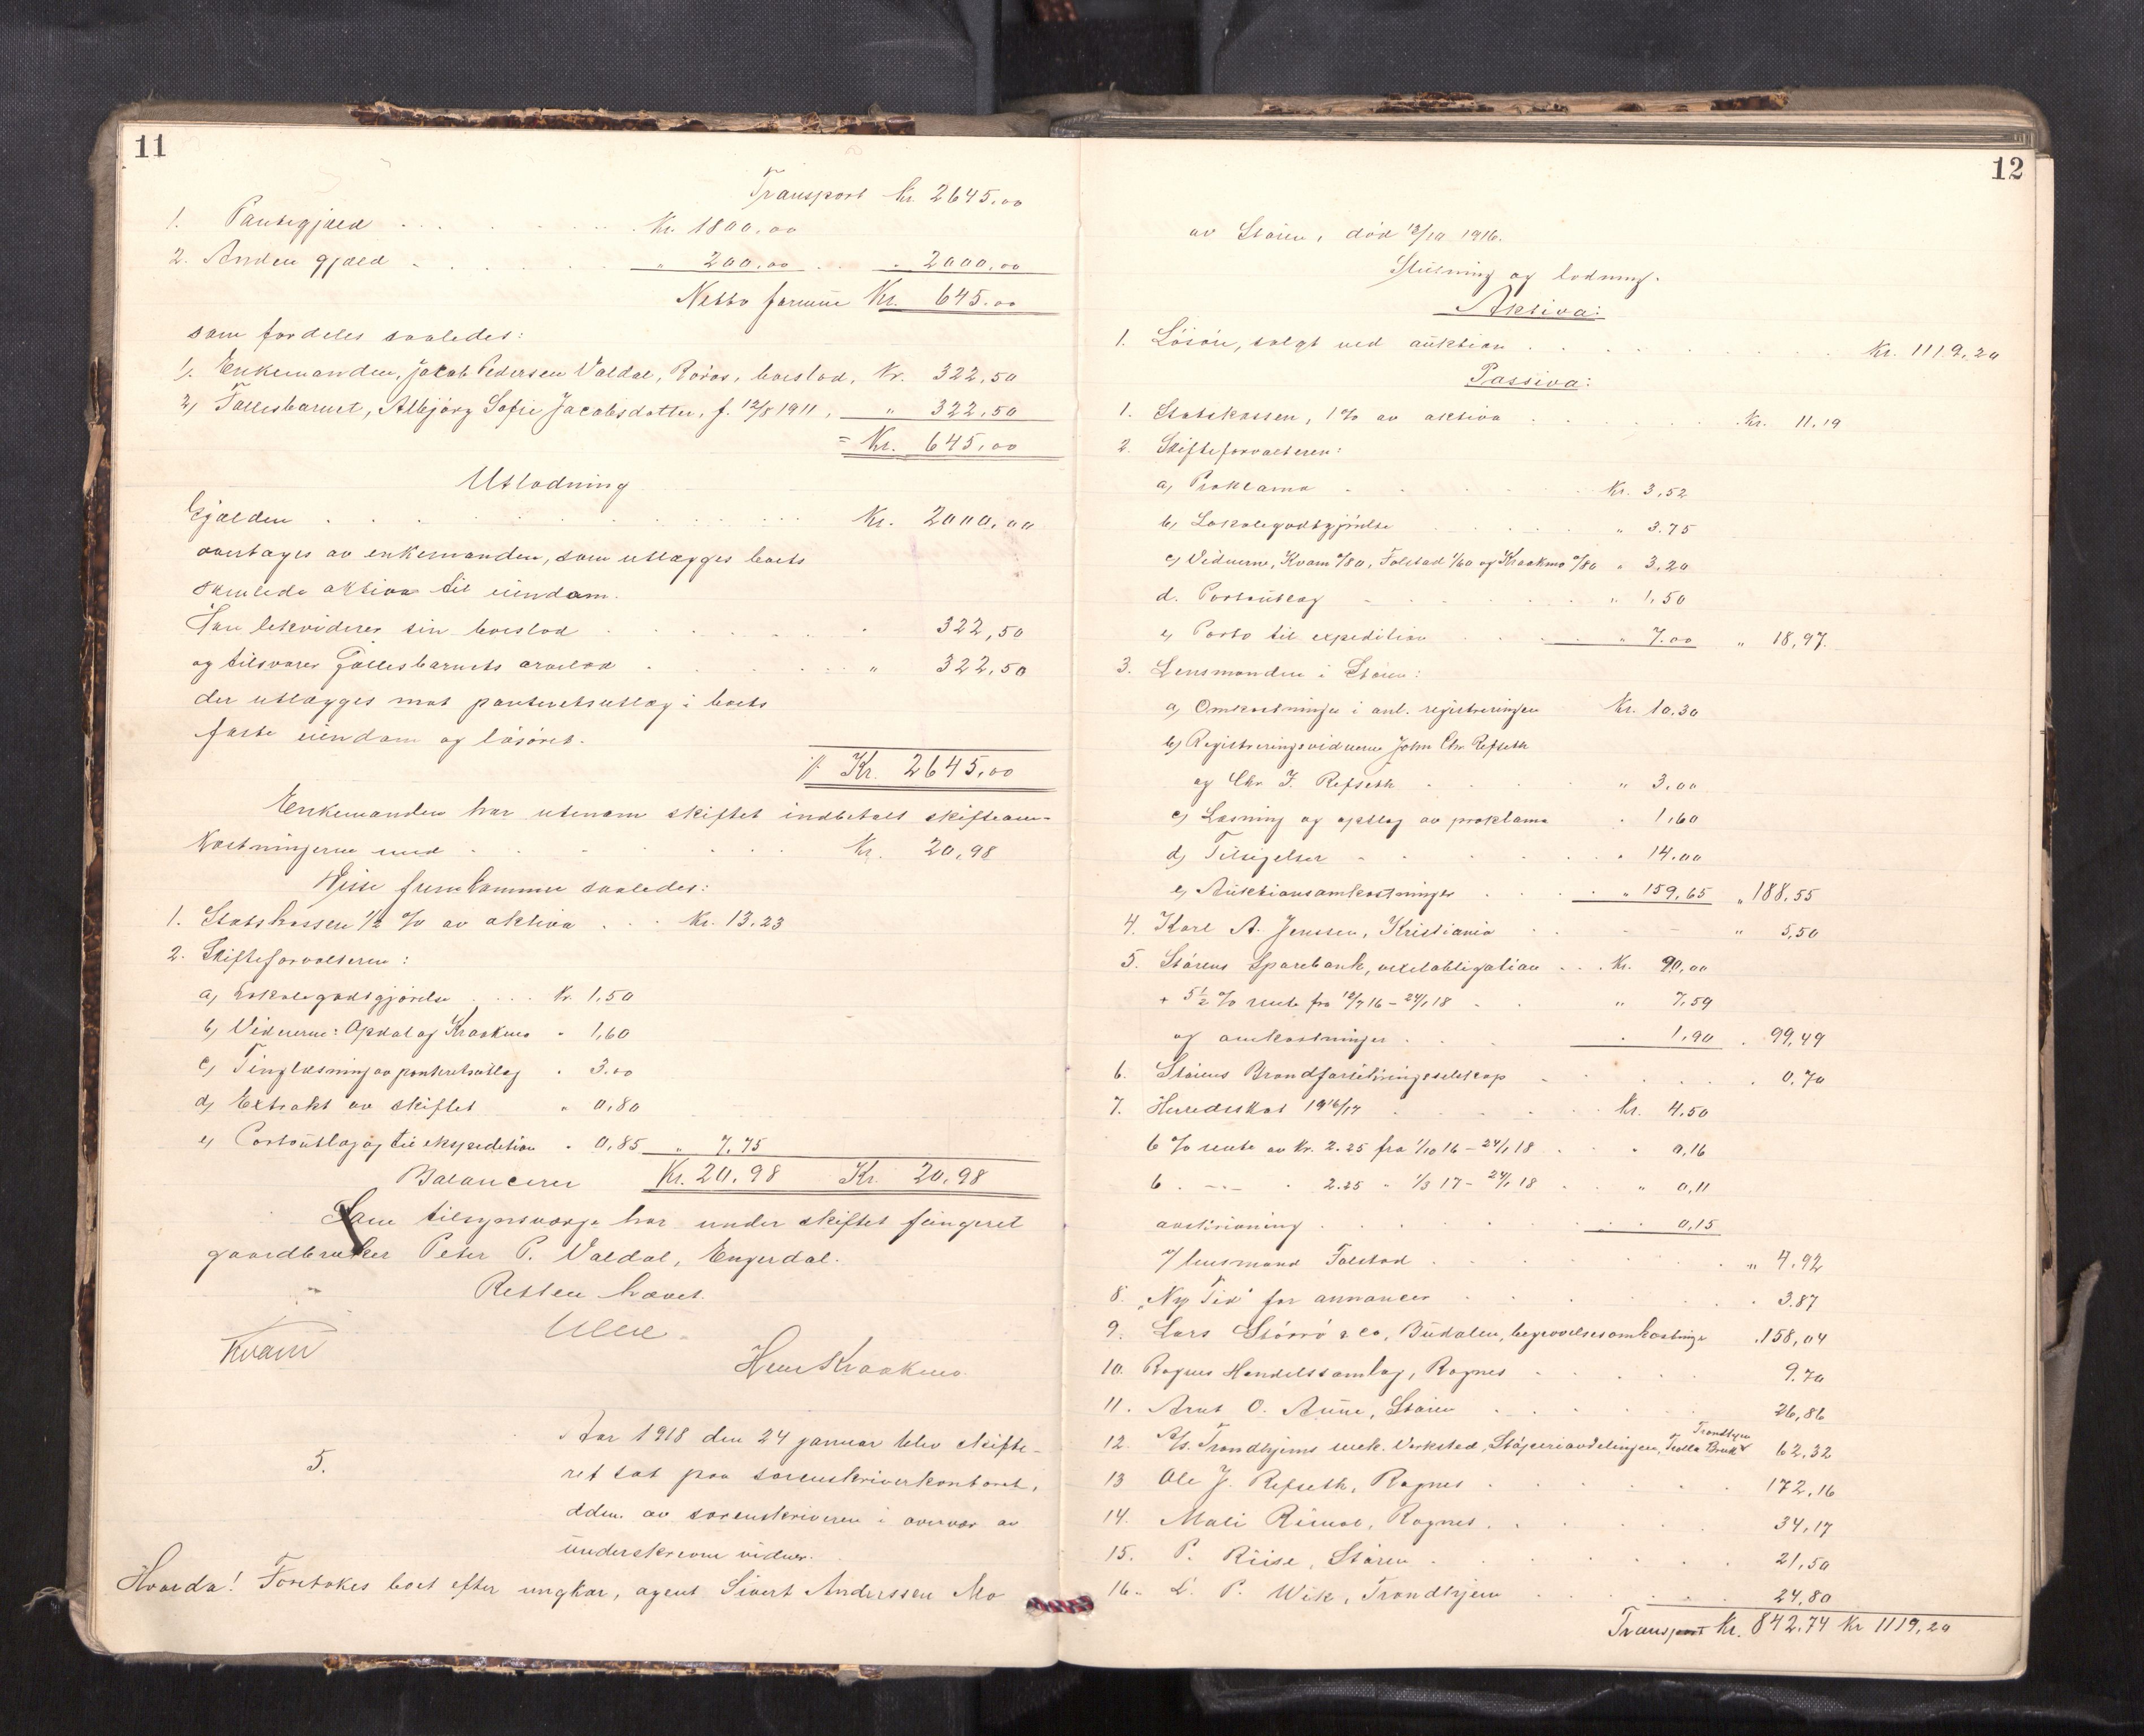 11
Transport Kr. 2645.00
1. Pantegjæld . . . . . . Kr. 1800.00
2. Anden gjæld . . . . . " 200.00 . . " 2000,00
Netto formue Kr. 645.00
som fordeles saaledes:
1). Enkemanden, Jacob Pedersen Valdal, Røros, boeslod, Kr. 322,50
2) Fællesbarnet, Albjørg Sofie Jacobsdatter, f. 12/8 1911, " 322,50
= Kr. 645,00
Utlodning
Gjælden . . . . . . . Kr. 2000,00
overtages av enkemanden, som utlægges boets
samlede aktiva til eiendom.
Han lekviderer sin boeslod . . . . . 322,50
og tilsvarer fællesbarnets arvelod . . . . " 322,50
der utlægges mot panteretsutlæg i boets
faste eiendom og løsøret.
Kr. 2645,00
Enkemanden har utenom skiftet indbetalt skifteom-
kostningerne med . . . . . . Kr. 20,98
Disse fremkommer saaledes:
1. Statskassen 1/2 % av aktiva . . . Kr. 13.23
2. Skifteforvalteren:
a, Lokalegodtgjørelse . . . Kr. 1,50
b, Vidnerne: Opdal og Kraakmo " 1,60
c, Tinglæsning av panteretsutlæg " 3.00
d, Extrakt av skiftet " 0,80
e, Portoutlæg og til ekspedition " 0,85 " 7,75
Balancerer Kr. 20,98 Kr. 20,98
Som tilsynsværge har under skiftet fungeret
gaardbruker Peter P. Valdal, Engerdal.
Retten hævet.
Kvam
Hm Kraakmo.
5.
Aar 1918 den 24 januar blev skifte-
ret sat paa sorenskriverkontoret,
dden. av sorenskriveren i overvær av
underskrevne vidner.
Hvorda! Foretokes boet efter ungkar, agent Sivert Anderssen Mo
12
av Støren, død 12/10 1916.
Slutning og lodning.
Aktiva:
1. Løsøre, solgt ved auktion . . . . . . . Kr. 1119,20
Passiva:
1. Statskassen, 1 % av aktiva . . . . . Kr. 11,19
2. Skifteforvalteren:
a, Proklama . . . . . Kr. 3,52
b, Lokalegodtgjørelse . . . . " 3.75
c, Vidnerne, Kvam 0/80, Folstad 1/60 og Kraakmo 0/80 " 3,20
d. Portoutlæg . . . . . " 1,50
e, Porto til expedition . . . " 7.00 " 18,97.
3. Lensmanden i Støren:
a, Omkostninger i anl. registreringen Kr. 10.30
b, Registreringsvidnerne John Chr. Refseth
og Chr. J. Refseth . . . . " 3,00
c, Læsning og opslag av proklama . 1,60
d, Tilsigelser . . . . . " 14.00
e, Auktionsomkostninger . . . . " 159,65 " 188,55
4. Karl A. Jenssen, Kristiania . . . . " 5,50
5. Størens Sparebank, vexelobligation . . . Kr. 90,00
+ 5 1/2 % rente fra 12/7 16 - 24/1 18 . . " 7,59
og omkostninger . . . . 1,90 . 99,49
6. Størens Brandforsikringsselskap . . . . . 0,70
7. Herredsskat 1916/17 . . . . . Kr. 4.50
6 % rente av Kr. 2.25 fra 1/10 16 - 24/1 18 . . " 0,16
6 . -"- . 2.25 " 1/3 17 - 24/1 18 . . " 0,11
avskrivning . . . . . . . 0,15
v/ lensmand Folstad . . . . . " 4,92
8. "Ny Tid" for annoncer . . . . . . 3.87
9. Lars Størrø & Co, Budalen, begravelsesomkostninger . 158,04
10. Rognes Handelssamlag, Rognes . . . . . 9.70
11. Arnt O. Aune, Støren . . . . . 26,86
12. A/s. Trondhjems mek. Verksted, Støperiavdelingen, Trolla Bruk, Trondhjem 62,32
13 Ole J. Refseth, Rognes . . . . . 172,16
14. Mali Rimol, Rognes . . . . . 34,17
15. P. Riise, Støren . . . . . . 21,50
16. L. P. Wik, Trondhjem . . . . 24,80
Transport Kr. 842.74 Kr 1119,20